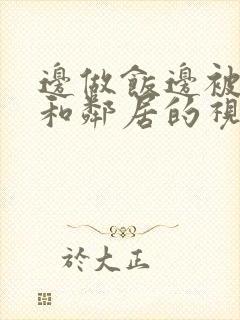 邊做飯邊被
和鄰居的視
於大正